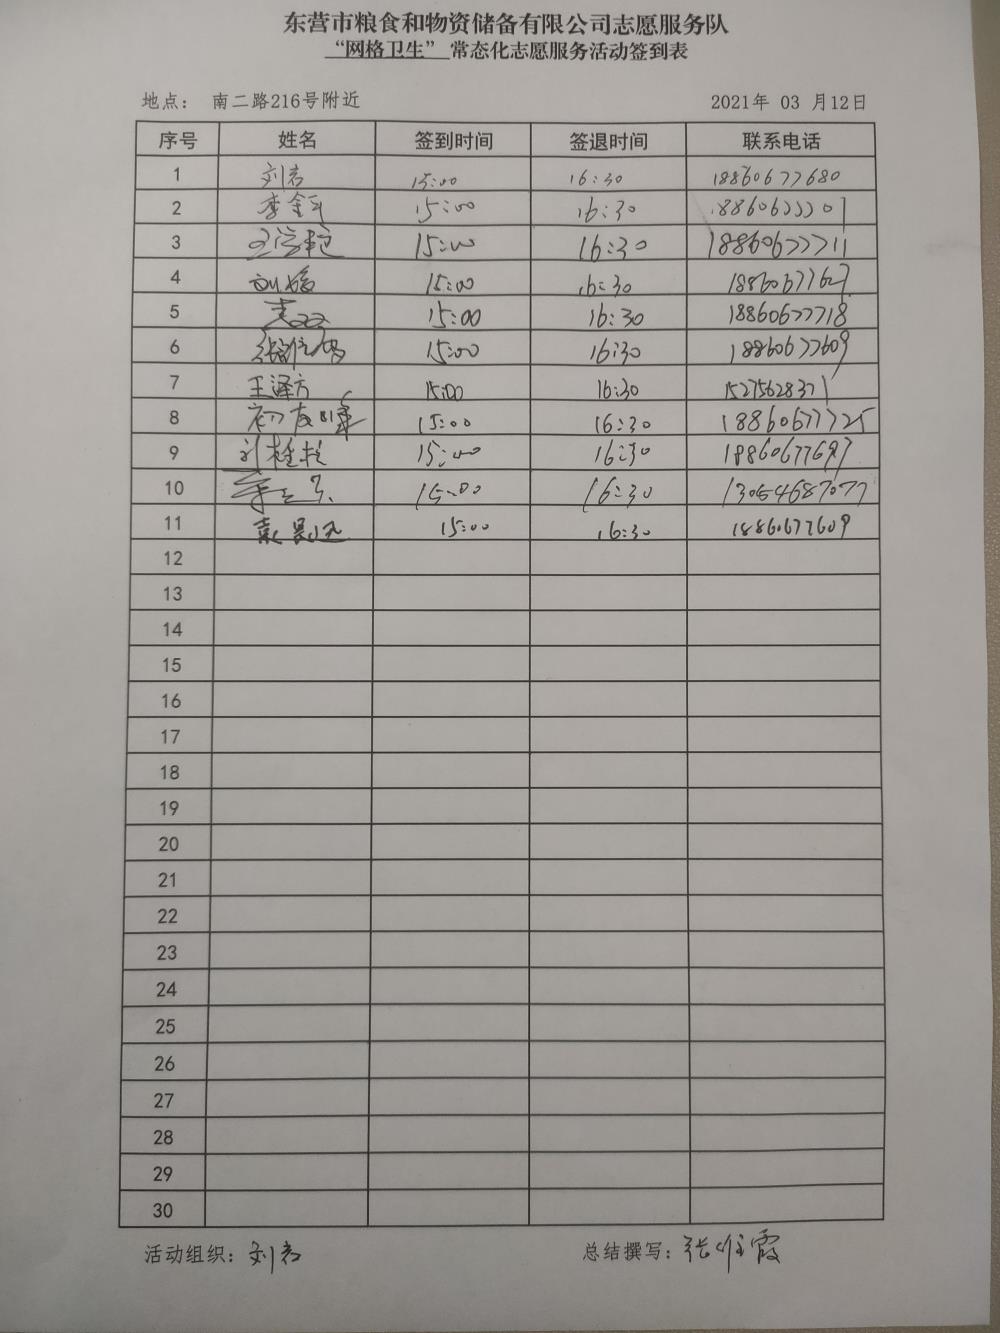 东营市粮食和物资储备有限公司志愿服务队
“网格卫生”常态化志愿服务活动签到表
地点： 南二路216号附近 2021年 03 月12日
序号 姓名 签到时间 签退时间 联系电话
1 刘君 15:00 16:30 18860677680
2 15:00 16:30
3 15:00 16:30 18860677711
4 15:00 16:30
5 15:00 16:30 18860677718
6 15:00 16:30 18860677609
7 王泽方 15:00 16:30 15275628371
8 15:00 16:30 18860677725
9 15:00 16:30 18860677697
10 15:00 16:30 13054687077
11 15:00 16:30 18860677609
12
13
14
15
16
17
18
19
20
21
22
23
24
25
26
27
28
29
30
活动组织：刘君 总结撰写：张维霞